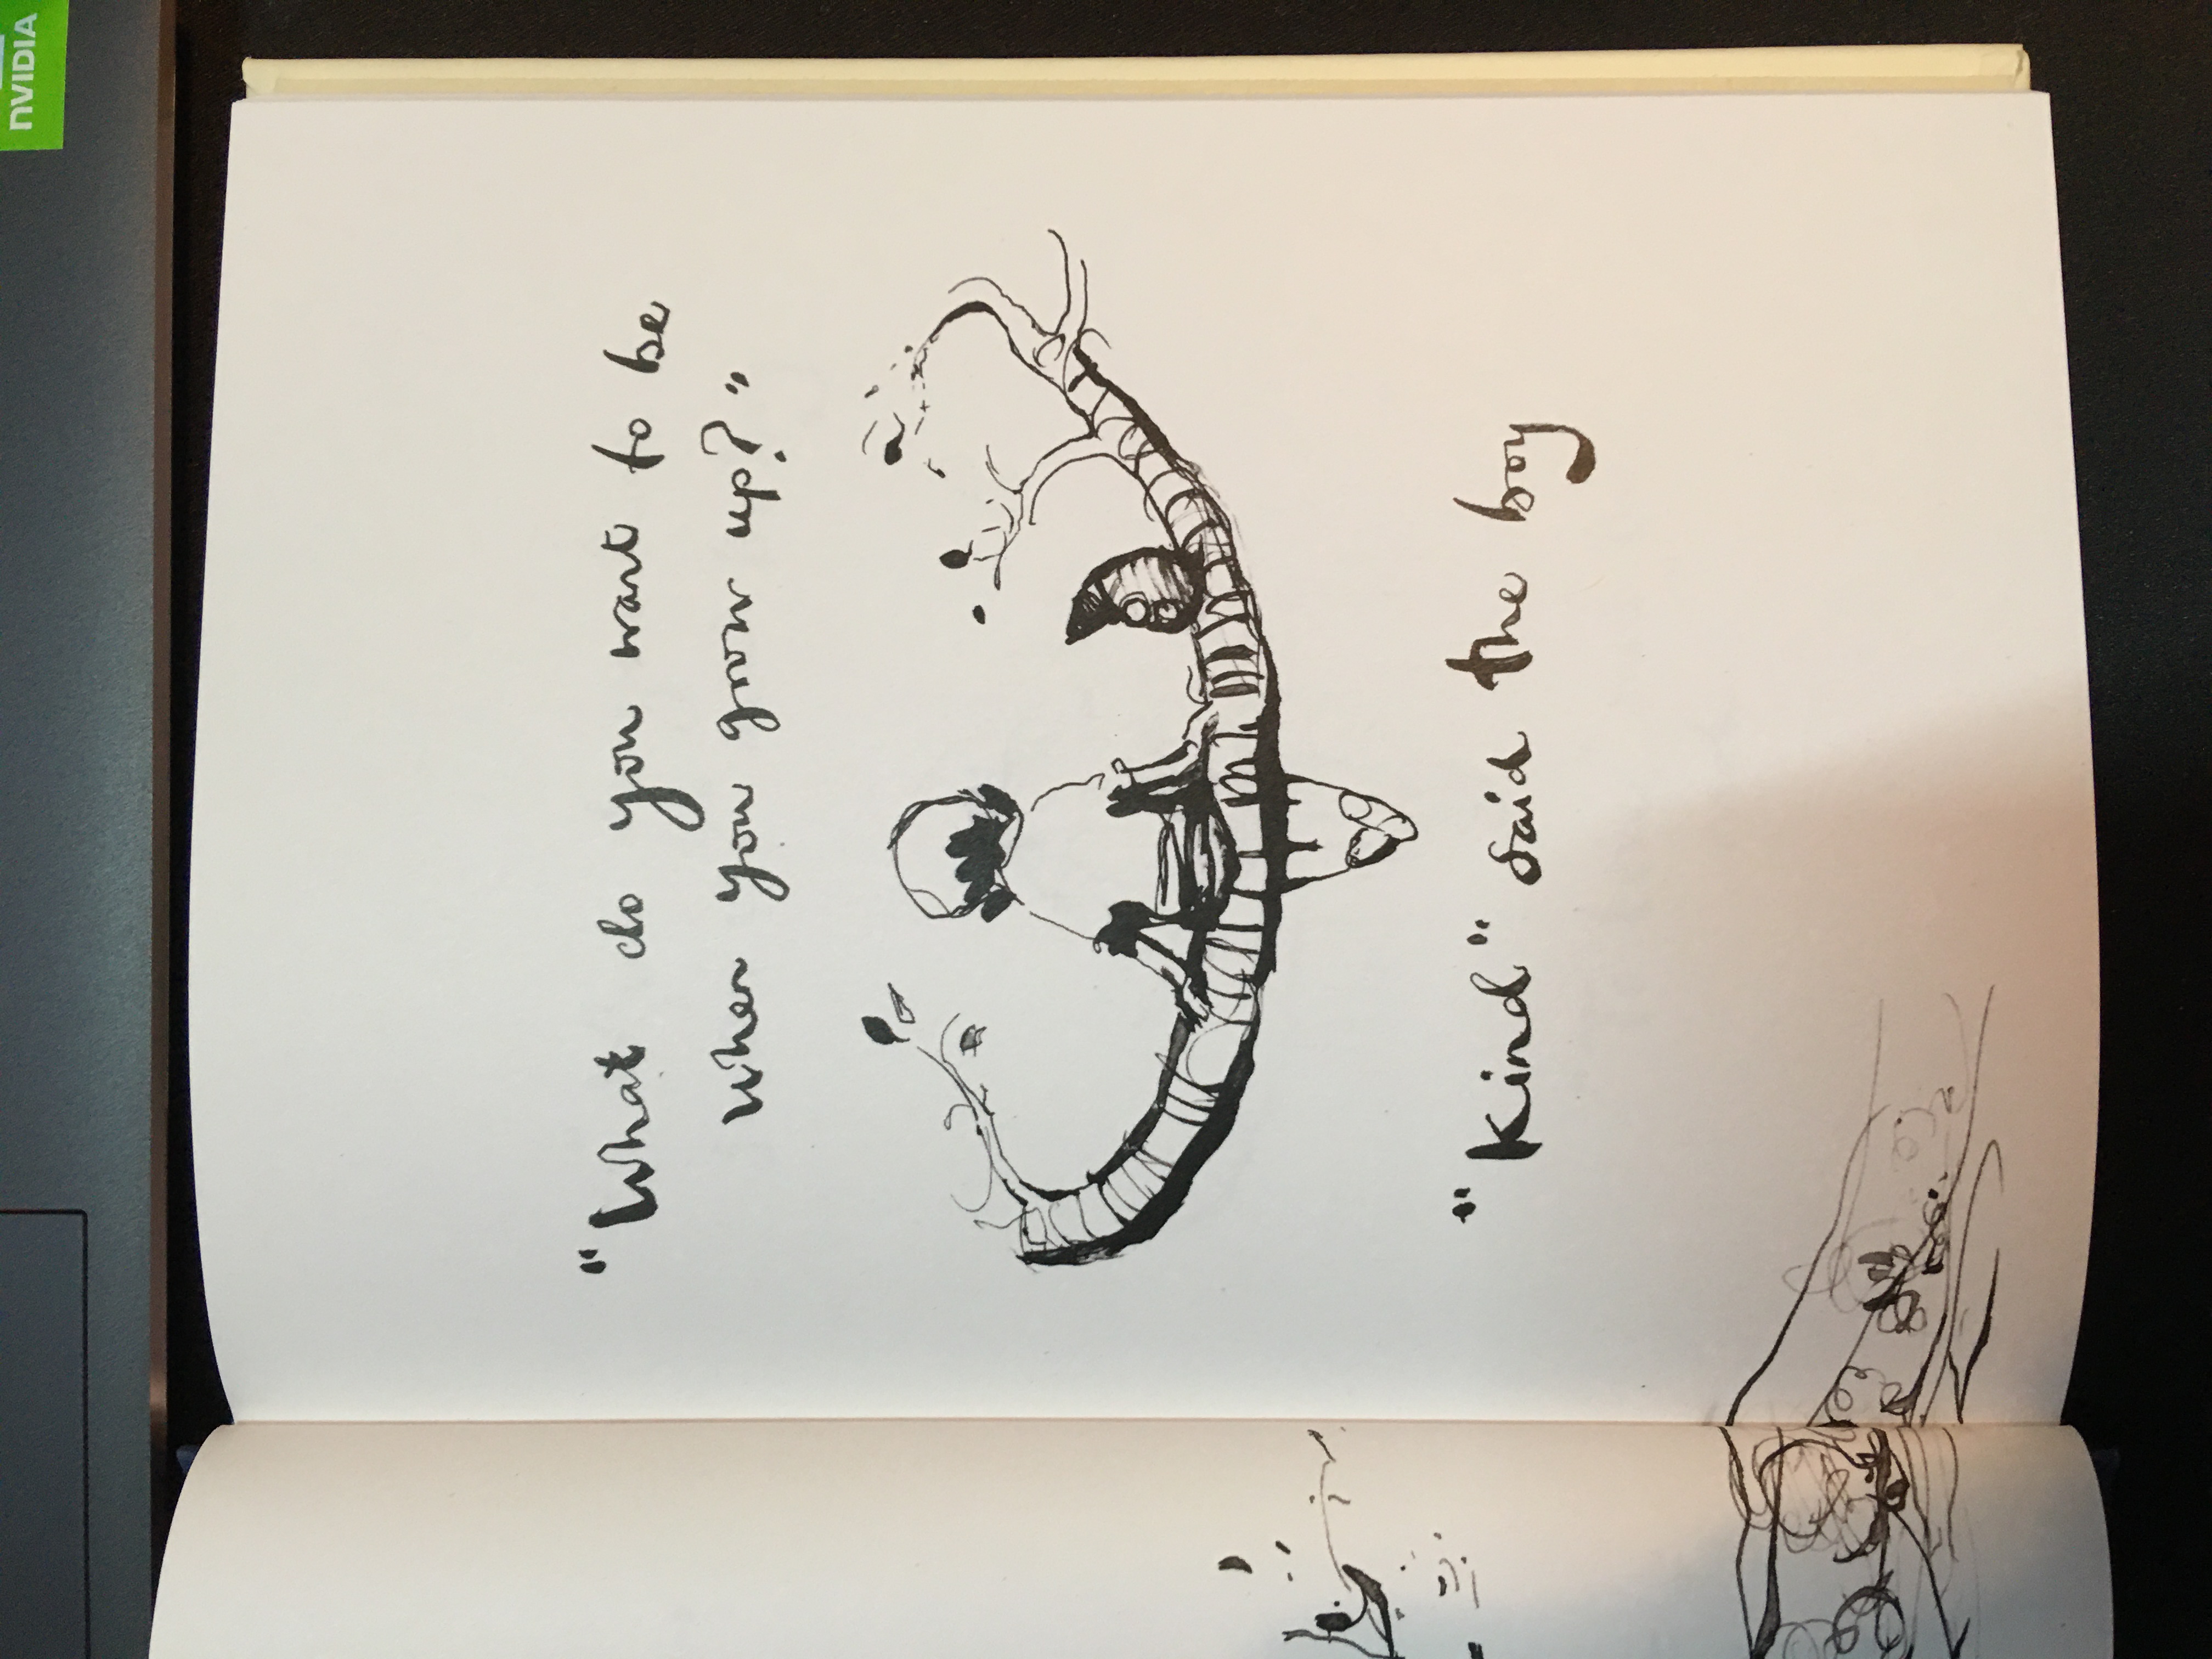 NVIDIA
"What do you want to be
when you grow up?"
"Kind" said the boy